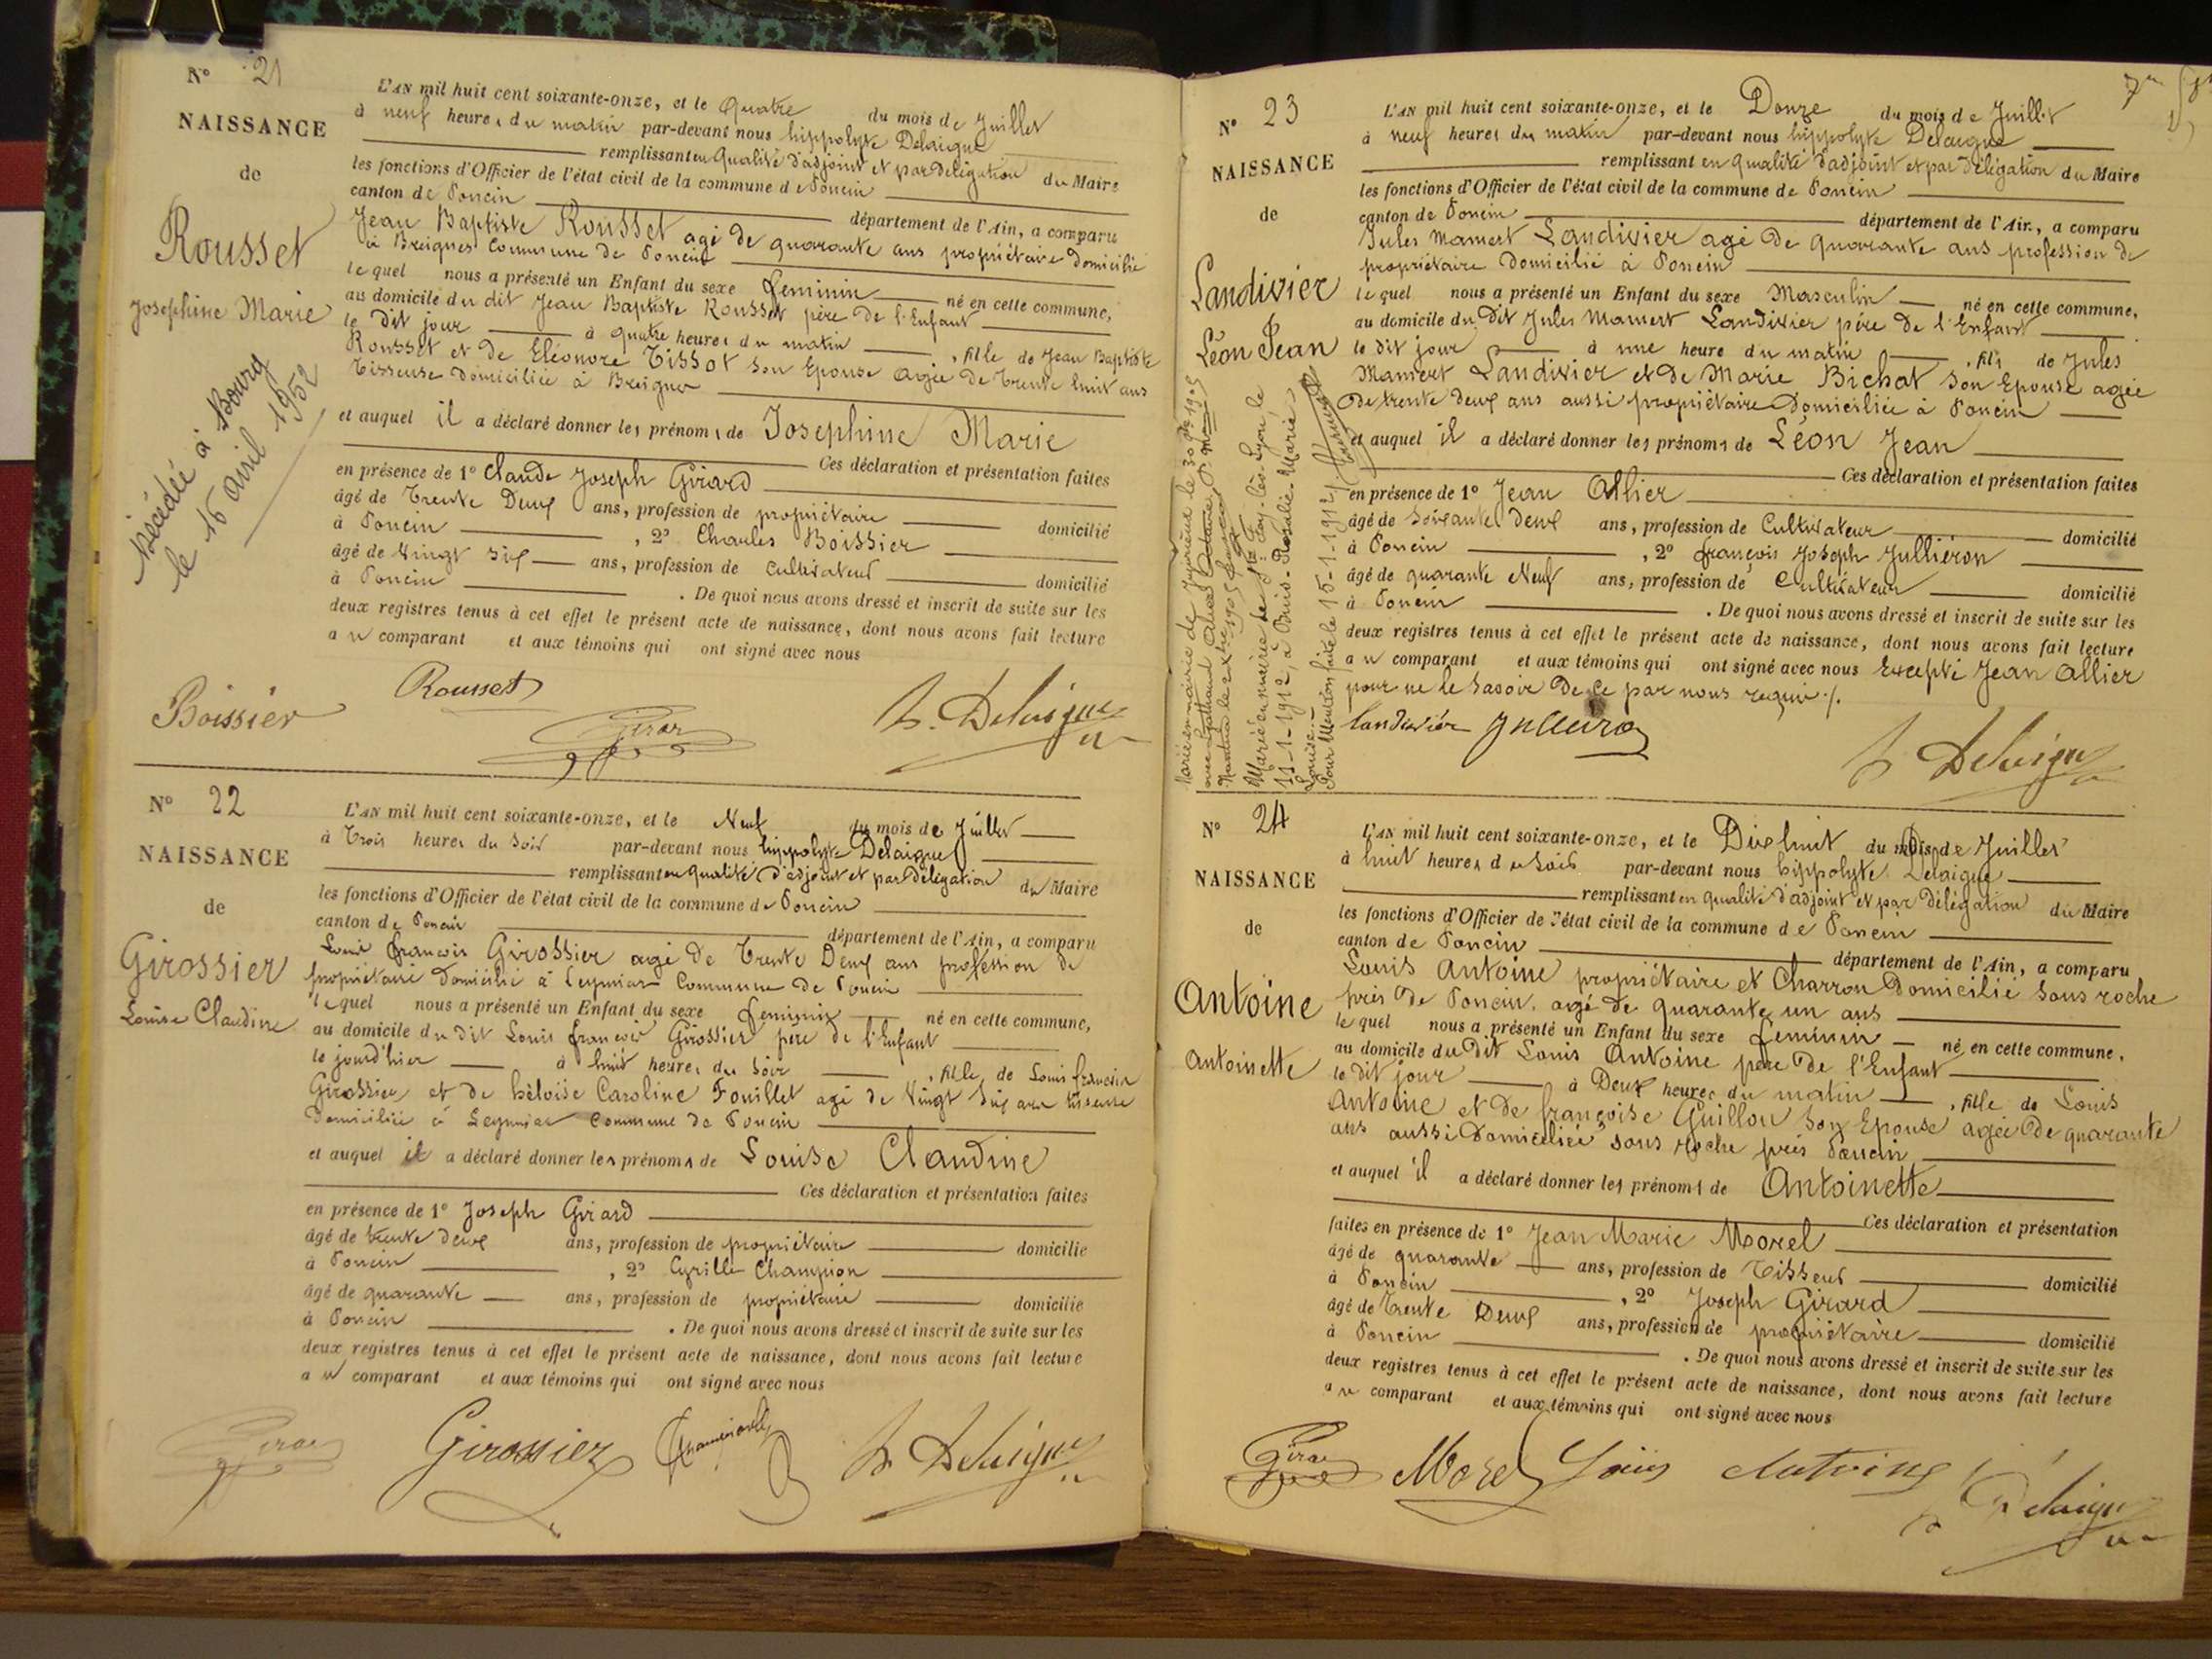 N° 21
NAISSANCE
de
Rousset
Josephine Marie
Décédée à Bourg
le 16 avril 1952
L'AN mil huit cent soixante-onze, et le Quatre du mois de Juillet
à neuf heures du matin par-devant nous hippolyte Delaigue
remplissant en qualité d'adjoint et par délégation du Maire
les fonctions d'Officier de l'état civil de la commune de Poncin
canton de Poncin département de l'Ain, a comparu
Jean Baptiste Rousset agé de quarante ans propriétaire domicilié
à Breignes commune de Poncin
lequel nous a présenté un Enfant du sexe feminin né en cette commune,
au domicile du dit Jean Baptiste Rousset père de l'Enfant
le dit jour à quatre heures du matin , fille de Jean Baptiste
Rousset et de Eléonore Tissot son Epouse agée de trente huit ans
Tisseuse domiciliée à Breignes
et auquel il a déclaré donner les prénoms de Josephine Marie
Ces déclaration et présentation faites
en présence de 1° Claude Joseph Girard
âgé de trente deux ans, profession de propriétaire domicilié
à Poncin , 2° Charles Boissier
âgé de vingt six ans, profession de cultivateur domicilié
à Poncin . De quoi nous avons dressé et inscrit de suite sur les
deux registres tenus à cet effet le présent acte de naissance, dont nous avons fait lecture
au comparant et aux témoins qui ont signé avec nous
Boissier Rousset Girar h. Delaigue
N° 22
NAISSANCE
de
Girossier
Louise Claudine
L'AN mil huit cent soixante-onze, et le Neuf du mois de Juillet
à trois heures du soir par-devant nous hippolyte Delaigue
remplissant en qualité d'adjoint et par délégation du Maire
les fonctions d'Officier de l'état civil de la commune de Poncin
canton de Poncin département de l'Ain, a comparu
Louis françois Girossier agé de trente deux ans profession de
propriétaire domicilié à Leymiat commune de Poncin
lequel nous a présenté un Enfant du sexe feminin né en cette commune,
au domicile du dit Louis françois Girossier père de l'Enfant
le jourd'hier à huit heures du soir , fille de Louis françois
Girossier et de héloïse Caroline Fouillet agé de vingt six ans tisseuse
domiciliée à Leymiat commune de Poncin
et auquel il a déclaré donner les prénoms de Louise Claudine
Ces déclaration et présentation faites
en présence de 1° Joseph Girard
âgé de trente deux ans, profession de propriétaire domicilié
à Poncin , 2° Cyrille Champion
âgé de quarante ans, profession de propriétaire domicilié
à Poncin . De quoi nous avons dressé et inscrit de suite sur les
deux registres tenus à cet effet le présent acte de naissance, dont nous avons fait lecture
au comparant et aux témoins qui ont signé avec nous
Girar Girossier h. Delaigue
N° 23
NAISSANCE
de
Landivier
Léon Jean
Marié en mairie de Jujurieux le 30
Marié en mairie de Ste Foy-lès-Lyon, le
11-1-1912, à Rosalie-Marie
Louise.
Pour mention faite le 15-1-1912
L'AN mil huit cent soixante-onze, et le Douze du mois de Juillet
à neuf heures du matin par-devant nous hippolyte Delaigue
remplissant en qualité d'adjoint et par délégation du Maire
les fonctions d'Officier de l'état civil de la commune de Poncin
canton de Poncin département de l'Ain, a comparu
Jules Mamert Landivier agé de quarante ans profession de
propriétaire domicilié à Poncin
lequel nous a présenté un Enfant du sexe Masculin né en cette commune,
au domicile du dit Jules Mamert Landivier père de l'Enfant
le dit jour à une heure du matin , fils de Jules
Mamert Landivier et de Marie Bichat son Epouse agée
de trente deux ans aussi propriétaire domiciliée à Poncin
et auquel il a déclaré donner les prénoms de Léon Jean
Ces déclaration et présentation faites
en présence de 1° Jean Allier
âgé de soixante deux ans, profession de Cultivateur domicilié
à Poncin , 2° françois Joseph Julliéron
âgé de quarante neuf ans, profession de Cultivateur domicilié
à Poncin . De quoi nous avons dressé et inscrit de suite sur les
deux registres tenus à cet effet le présent acte de naissance, dont nous avons fait lecture
au comparant et aux témoins qui ont signé avec nous Excepté Jean Allier
pour ne le savoir de ce par nous requis
Landivier h Delaigue
N° 24
NAISSANCE
de
Antoine
Antoinette
L'AN mil huit cent soixante-onze, et le Dix huit du mois de Juillet
à huit heures du soir par-devant nous hippolyte Delaigue
remplissant en qualité d'adjoint et par délégation du Maire
les fonctions d'Officier de l'état civil de la commune de Poncin
canton de Poncin département de l'Ain, a comparu
Louis Antoine propriétaire et Charron domicilié sous roche
près de Poncin, agé de quarante un ans
lequel nous a présenté un Enfant du sexe feminin né en cette commune,
au domicile du dit Louis Antoine père de l'Enfant
le dit jour à Deux heures du matin , fille de Louis
Antoine et de françoise Guillon son Epouse agée de quarante
ans aussi domiciliée sous roche près Poncin
et auquel il a déclaré donner les prénoms de Antoinette
Ces déclaration et présentation
faites en présence de 1° Jean Marie Morel
âgé de quarante ans, profession de Tisseur domicilié
à Poncin , 2° Joseph Girard
âgé de trente deux ans, profession de propriétaire domicilié
à Poncin . De quoi nous avons dressé et inscrit de suite sur les
deux registres tenus à cet effet le présent acte de naissance, dont nous avons fait lecture
au comparant et aux témoins qui ont signé avec nous
Girar Morel Louis Antoine h Delaigue